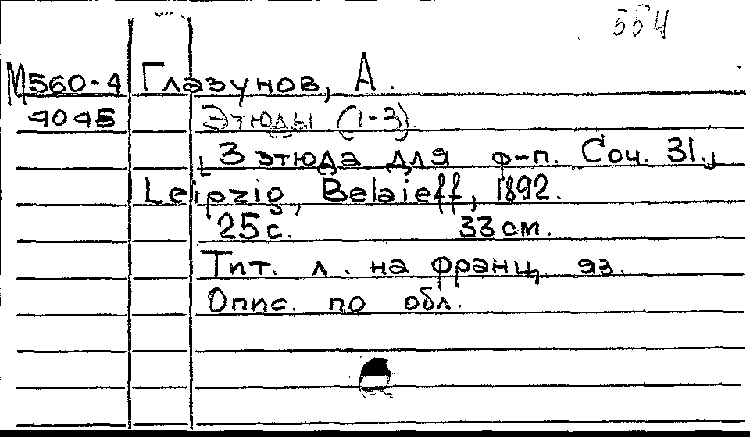 554
М560-4 Глазунов, А.
4045 Этюды (1-3)
[3 этюда для ф-п. Соч. 31.]
Leipzig, Belaieff, 1892.
25 с. 33 см.
Тит. л. на франц. яз.
Опис. по обл.